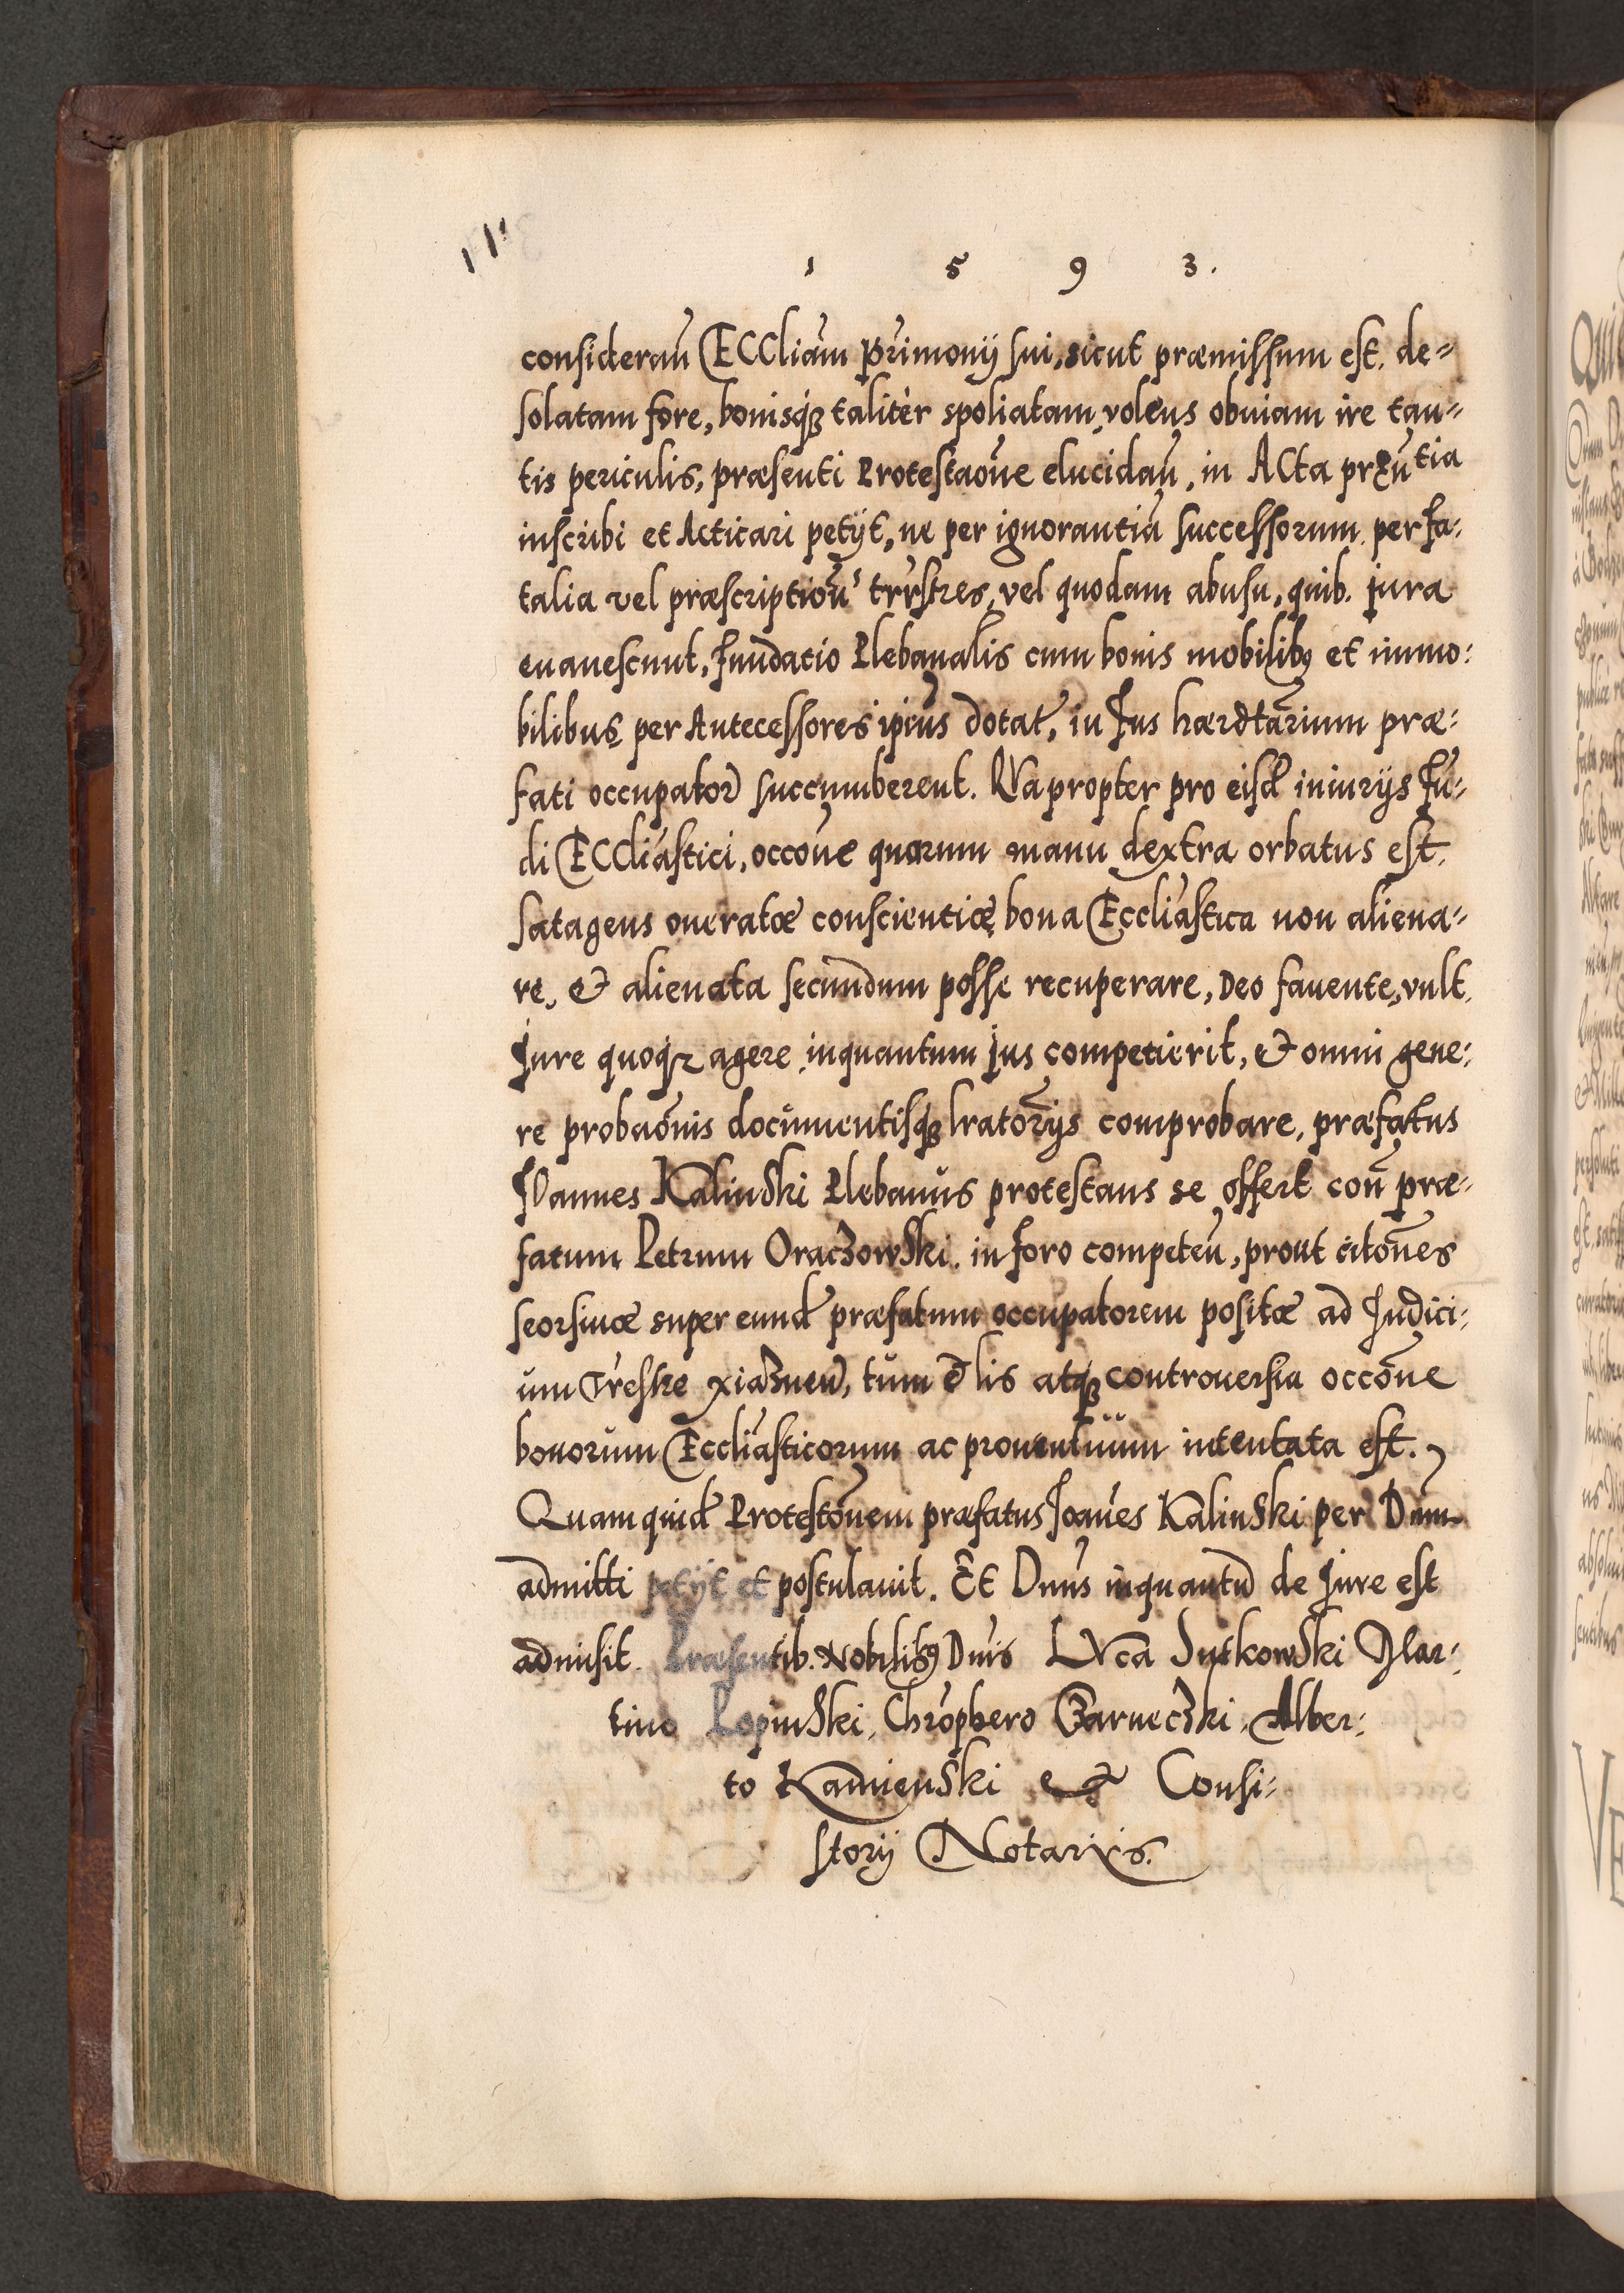 1 5 9 3.
consideran̄ ECCliam̄ Pr̄imonij sui, sicut præmissum est. de=
solatam fore, bonisq́ꝫ taliter spoliatam, volens obuiam ire tan=
tis periculis, præsenti Protestaōne elucidan̄, in ACta prꝫn̄tia
inscribi et Acticari petijt, ne per ignorantiā successorum, per fa:
talia vel præscription̄ trr̄stres, vel quodam abusu, quib. jura
euanescunt, fundatio Plebanalis cum bonis mobilibꝰ et immo:
bilibus per Antecessores ip̄ius dotat̄, in Jus hærdt̄arium præ:
fati occupator̄ succumberent. QVapropter pro eisd̄ iniurijs Fu:
di ECCliāstici, occōne quorum manu dextra orbatus est.
Satagens oneratæ conscientiæ, bona Eccliāstica non aliena=
re, & alienata secundum posse recuperare, Deo fauente, vult.
Jure quoqꝫ agere, inquantum jus competierit, & omni gene:
re probaōnis documentisq́ꝫ lr̄atorijs comprobare, præfatus
JOannes Kalinski Plebanus protestans se offert con̄ præ:
fatum Petrum Oraczowski. in foro competen̄, prout citōnes
seorsiuæ super eund̄ præfatum occupatorem positæ ad Judici:
um Tr̄estre xiązneń, tum ē lis atq́ꝫ controuersia occōne
bonorum Eccliāsticorum ac prouentuum intentata est.
Quam quid̄ Protestōnem præfatus Joan̄es Kalinski per Dn̄m
admitti petijt et postulauit. Et Dn̄us inquantū de Jure est
admisit. Præsentib. Nobilibꝰ Dn̄is LVca Sutkowski Mar:
tino Lopinski, Chrōphero Czarneczki, Alber:
to Kamienski & Consi:
storij Notarijs.